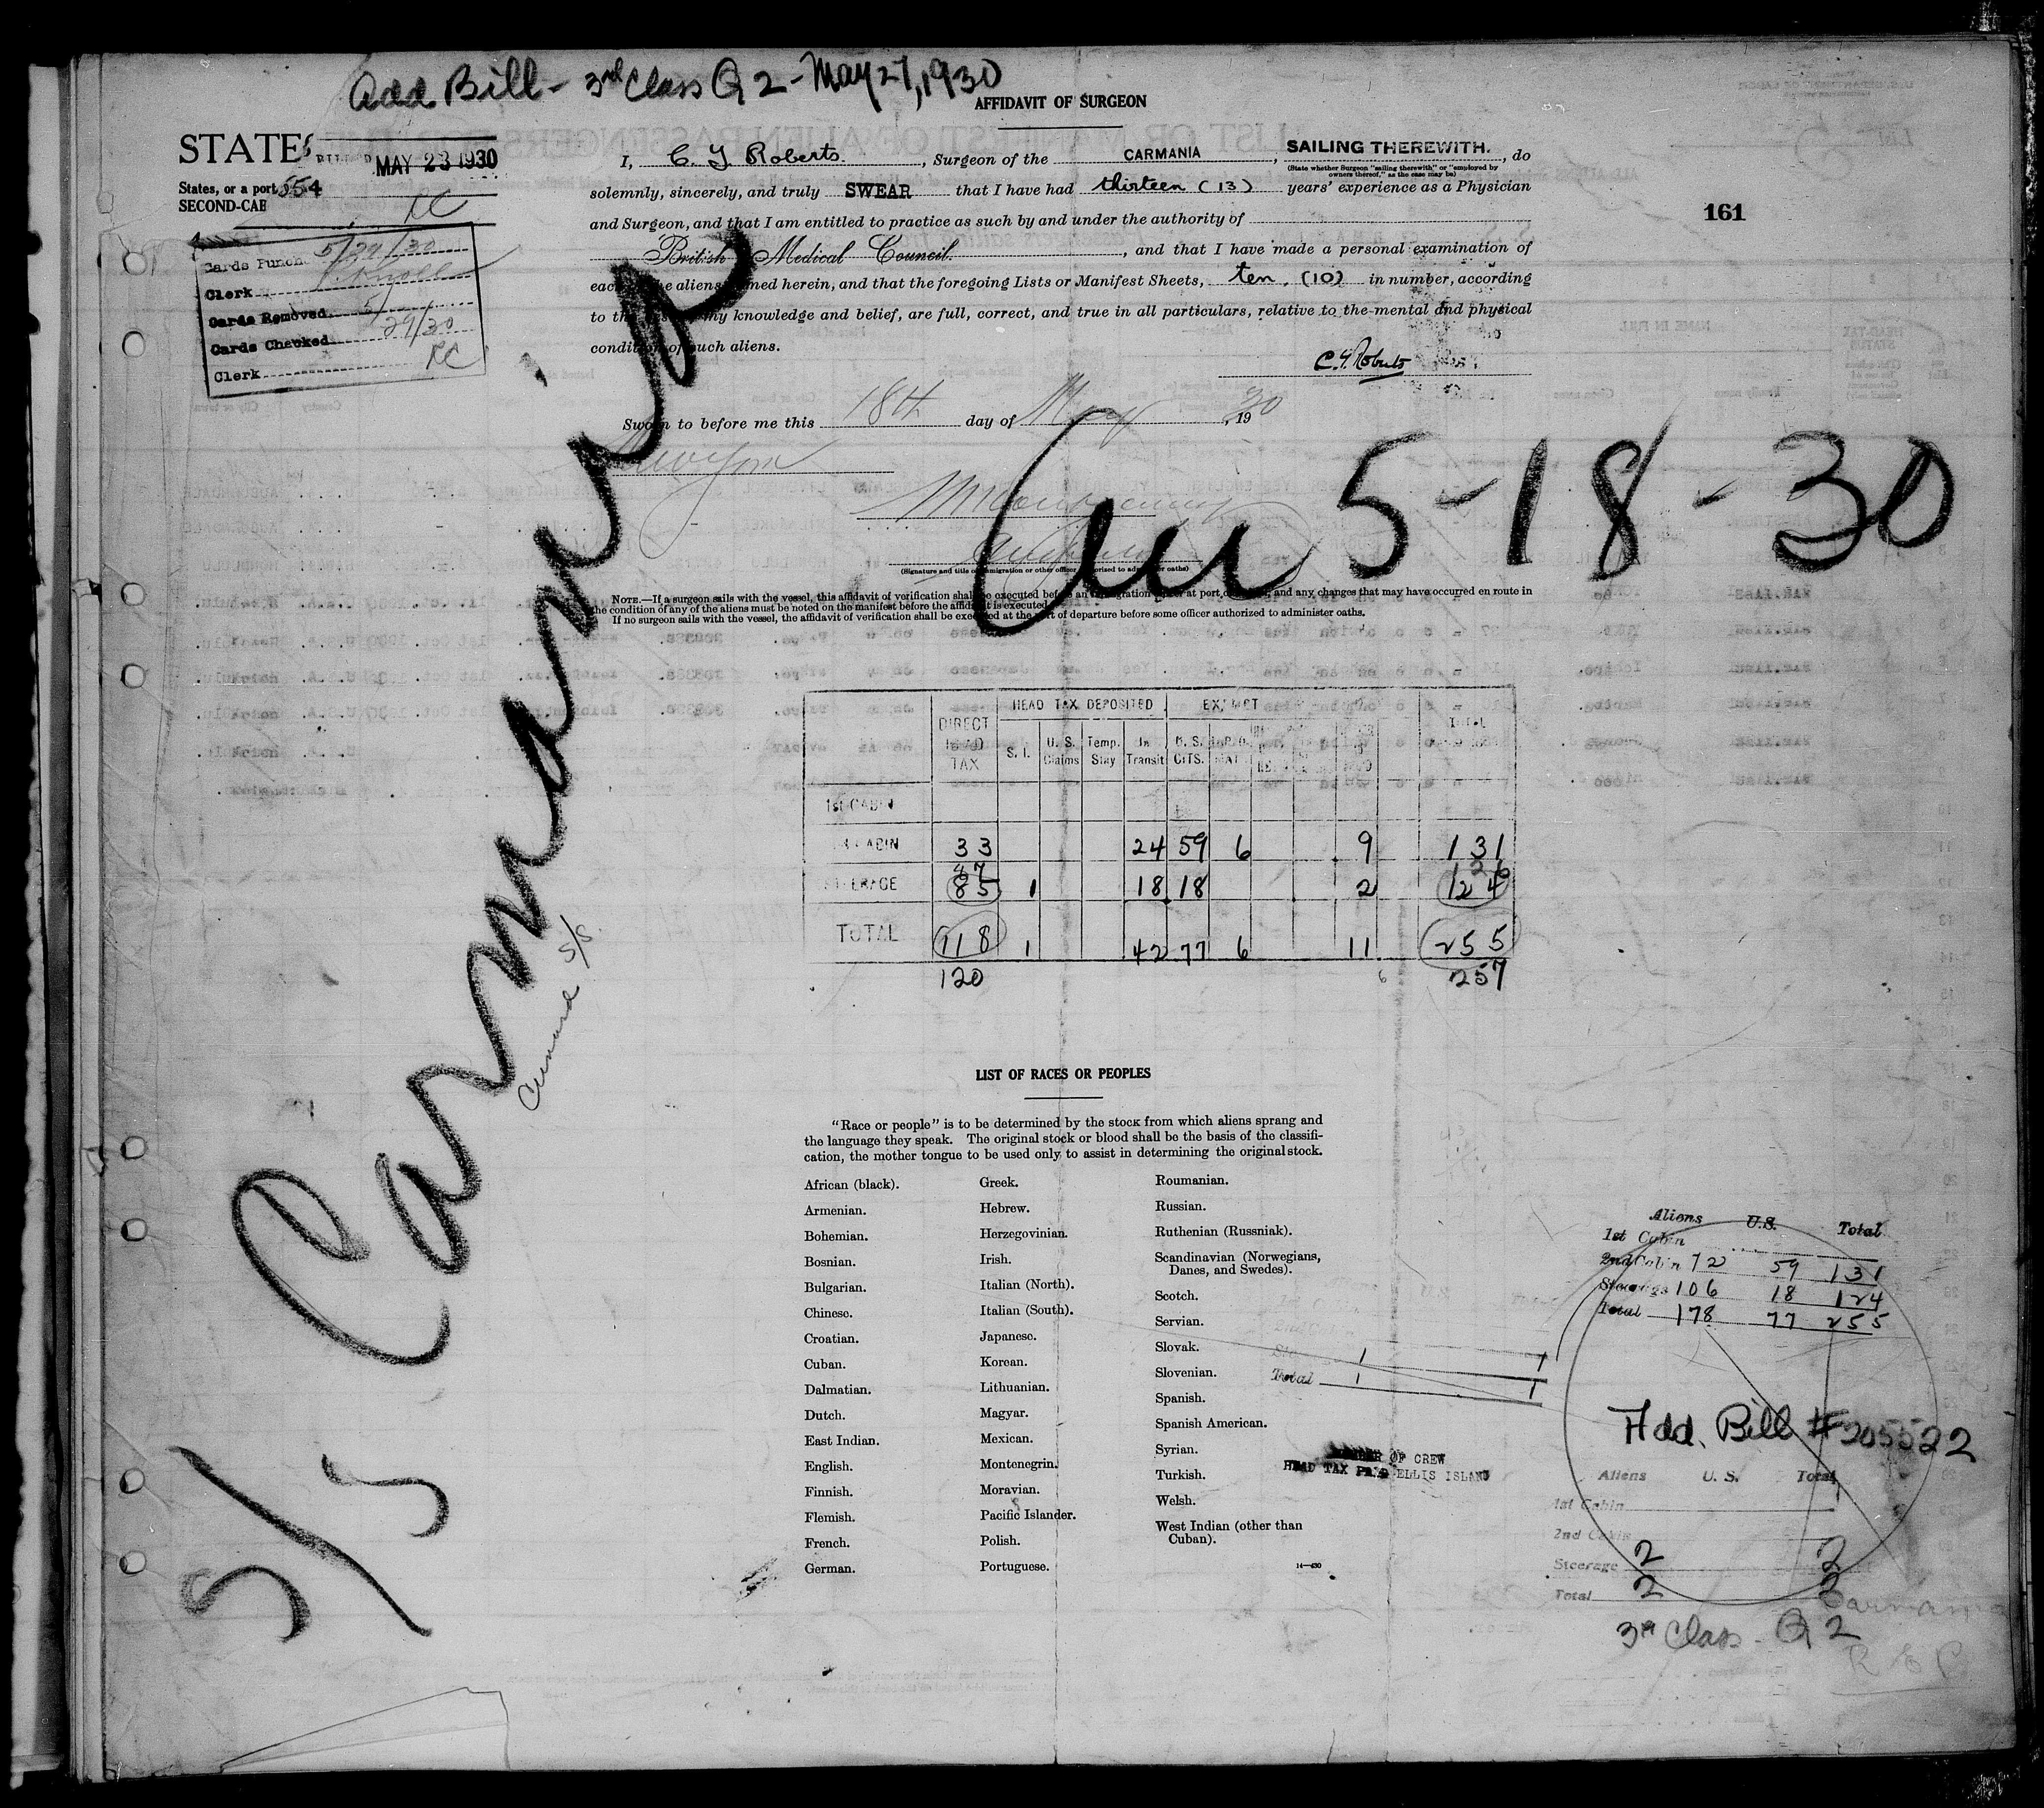 Add Bill - 3rd Class Q 2 - May 27, 1930
AFFIDAVIT OF SURGEON
STATES
BILLED MAY 23 1930
States, or a port 554
SECOND-CAB
RC
Cards Punch 5/29/30
Clerk
Cards Removed 5/
Cards Checked 29/30
Clerk RC
I, C. Y. Roberts, Surgeon of the CARMANIA, SAILING THEREWITH., do
(State whether Surgeon "sailing therewith" or "employed by
owners thereof," as the case may be)
solemnly, sincerely, and truly SWEAR that I have had thirteen (13) years' experience as a Physician
and Surgeon, and that I am entitled to practice as such by and under the authority of
British Medical Council., and that I have made a personal examination of
each the aliens named herein, and that the foregoing Lists or Manifest Sheets, ten. (10) in number, according
to the my knowledge and belief, are full, correct, and true in all particulars, relative to the mental and physical
condition of such aliens.
C. Y. Roberts
161
Sworn to before me this 18th day of May, 1930
Arr 5-18-30
(Signature and title of immigration or other officer authorized to administer oaths)
NOTE.—If a surgeon sails with the vessel, this affidavit of verification shall be executed before an immigration at port, and any changes that may have occurred en route in
the condition of any of the aliens must be noted on the manifest before the affidavit is executed.
If no surgeon sails with the vessel, the affidavit of verification shall be executed at the port of departure before some officer authorized to administer oaths.
S/S Carmania
Cunard S/S
DIRECT HEAD TAX HEAD TAX DEPOSITED EXEMPT TOTAL
S. I. U. S. Claims Temp. Stay In Transit U. S. CITS.
1st CABIN
CABIN 33 24 59 6 9 131
87 126
STEERAGE 85 1 18 18 2 124
TOTAL 118 1 42 77 6 11 255
120 257
LIST OF RACES OR PEOPLES
"Race or people" is to be determined by the stock from which aliens sprang and
the language they speak. The original stock or blood shall be the basis of the classifi-
cation, the mother tongue to be used only to assist in determining the original stock.
African (black).
Armenian.
Bohemian.
Bosnian.
Bulgarian.
Chinese.
Croatian.
Cuban.
Dalmatian.
Dutch.
East Indian.
English.
Finnish.
Flemish.
French.
German.
Greek.
Hebrew.
Herzegovinian.
Irish.
Italian (North).
Italian (South).
Japanese.
Korean.
Lithuanian.
Magyar.
Mexican.
Montenegrin.
Moravian.
Pacific Islander.
Polish.
Portuguese.
Roumanian.
Russian.
Ruthenian (Russniak).
Scandinavian (Norwegians,
Danes, and Swedes).
Scotch.
Servian.
Slovak.
Slovenian.
Spanish.
Spanish American.
Syrian.
Turkish.
Welsh.
West Indian (other than
Cuban).
14—430
1 1
Total 1 1
MEMBER OF CREW
HEAD TAX PAID ELLIS ISLAND
Aliens U.S. Total
1st Cabin
2nd Cabin 72 59 131
Steerage 106 18 124
Total 178 77 255
Add. Bill # 205522
Aliens U. S. Total
1st Cabin
2nd Cabin
Steerage 2 2
Total 2 2
Carmania
3rd Class - Q 2